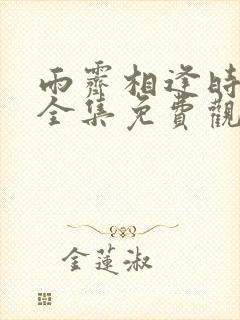 雨霽相逢時
全集免費觀
金蓮淑